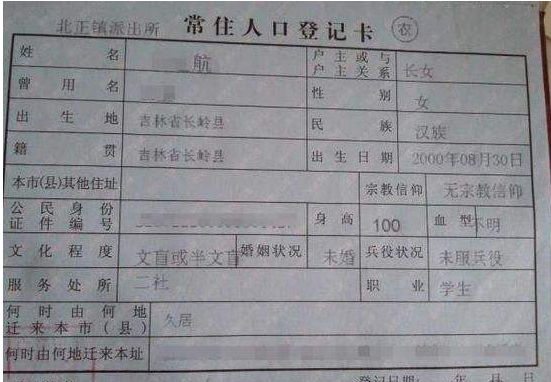 北正镇派出所 常住人口登记卡 农
姓名 航 户主或与户主关系 长女
曾用名 性别 女
出生地 吉林省长岭县 民族 汉族
籍贯 吉林省长岭县 出生日期 2000年08月30日
本市(县)其他住址 宗教信仰 无宗教信仰
公民身份证件编号 身高 100 血型 不明
文化程度 文盲或半文盲 婚姻状况 未婚 兵役状况 未服兵役
服务处所 二社 职业 学生
何时由何地迁来本市(县) 久居
何时由何地迁来本址
登记日期: 年 月 日